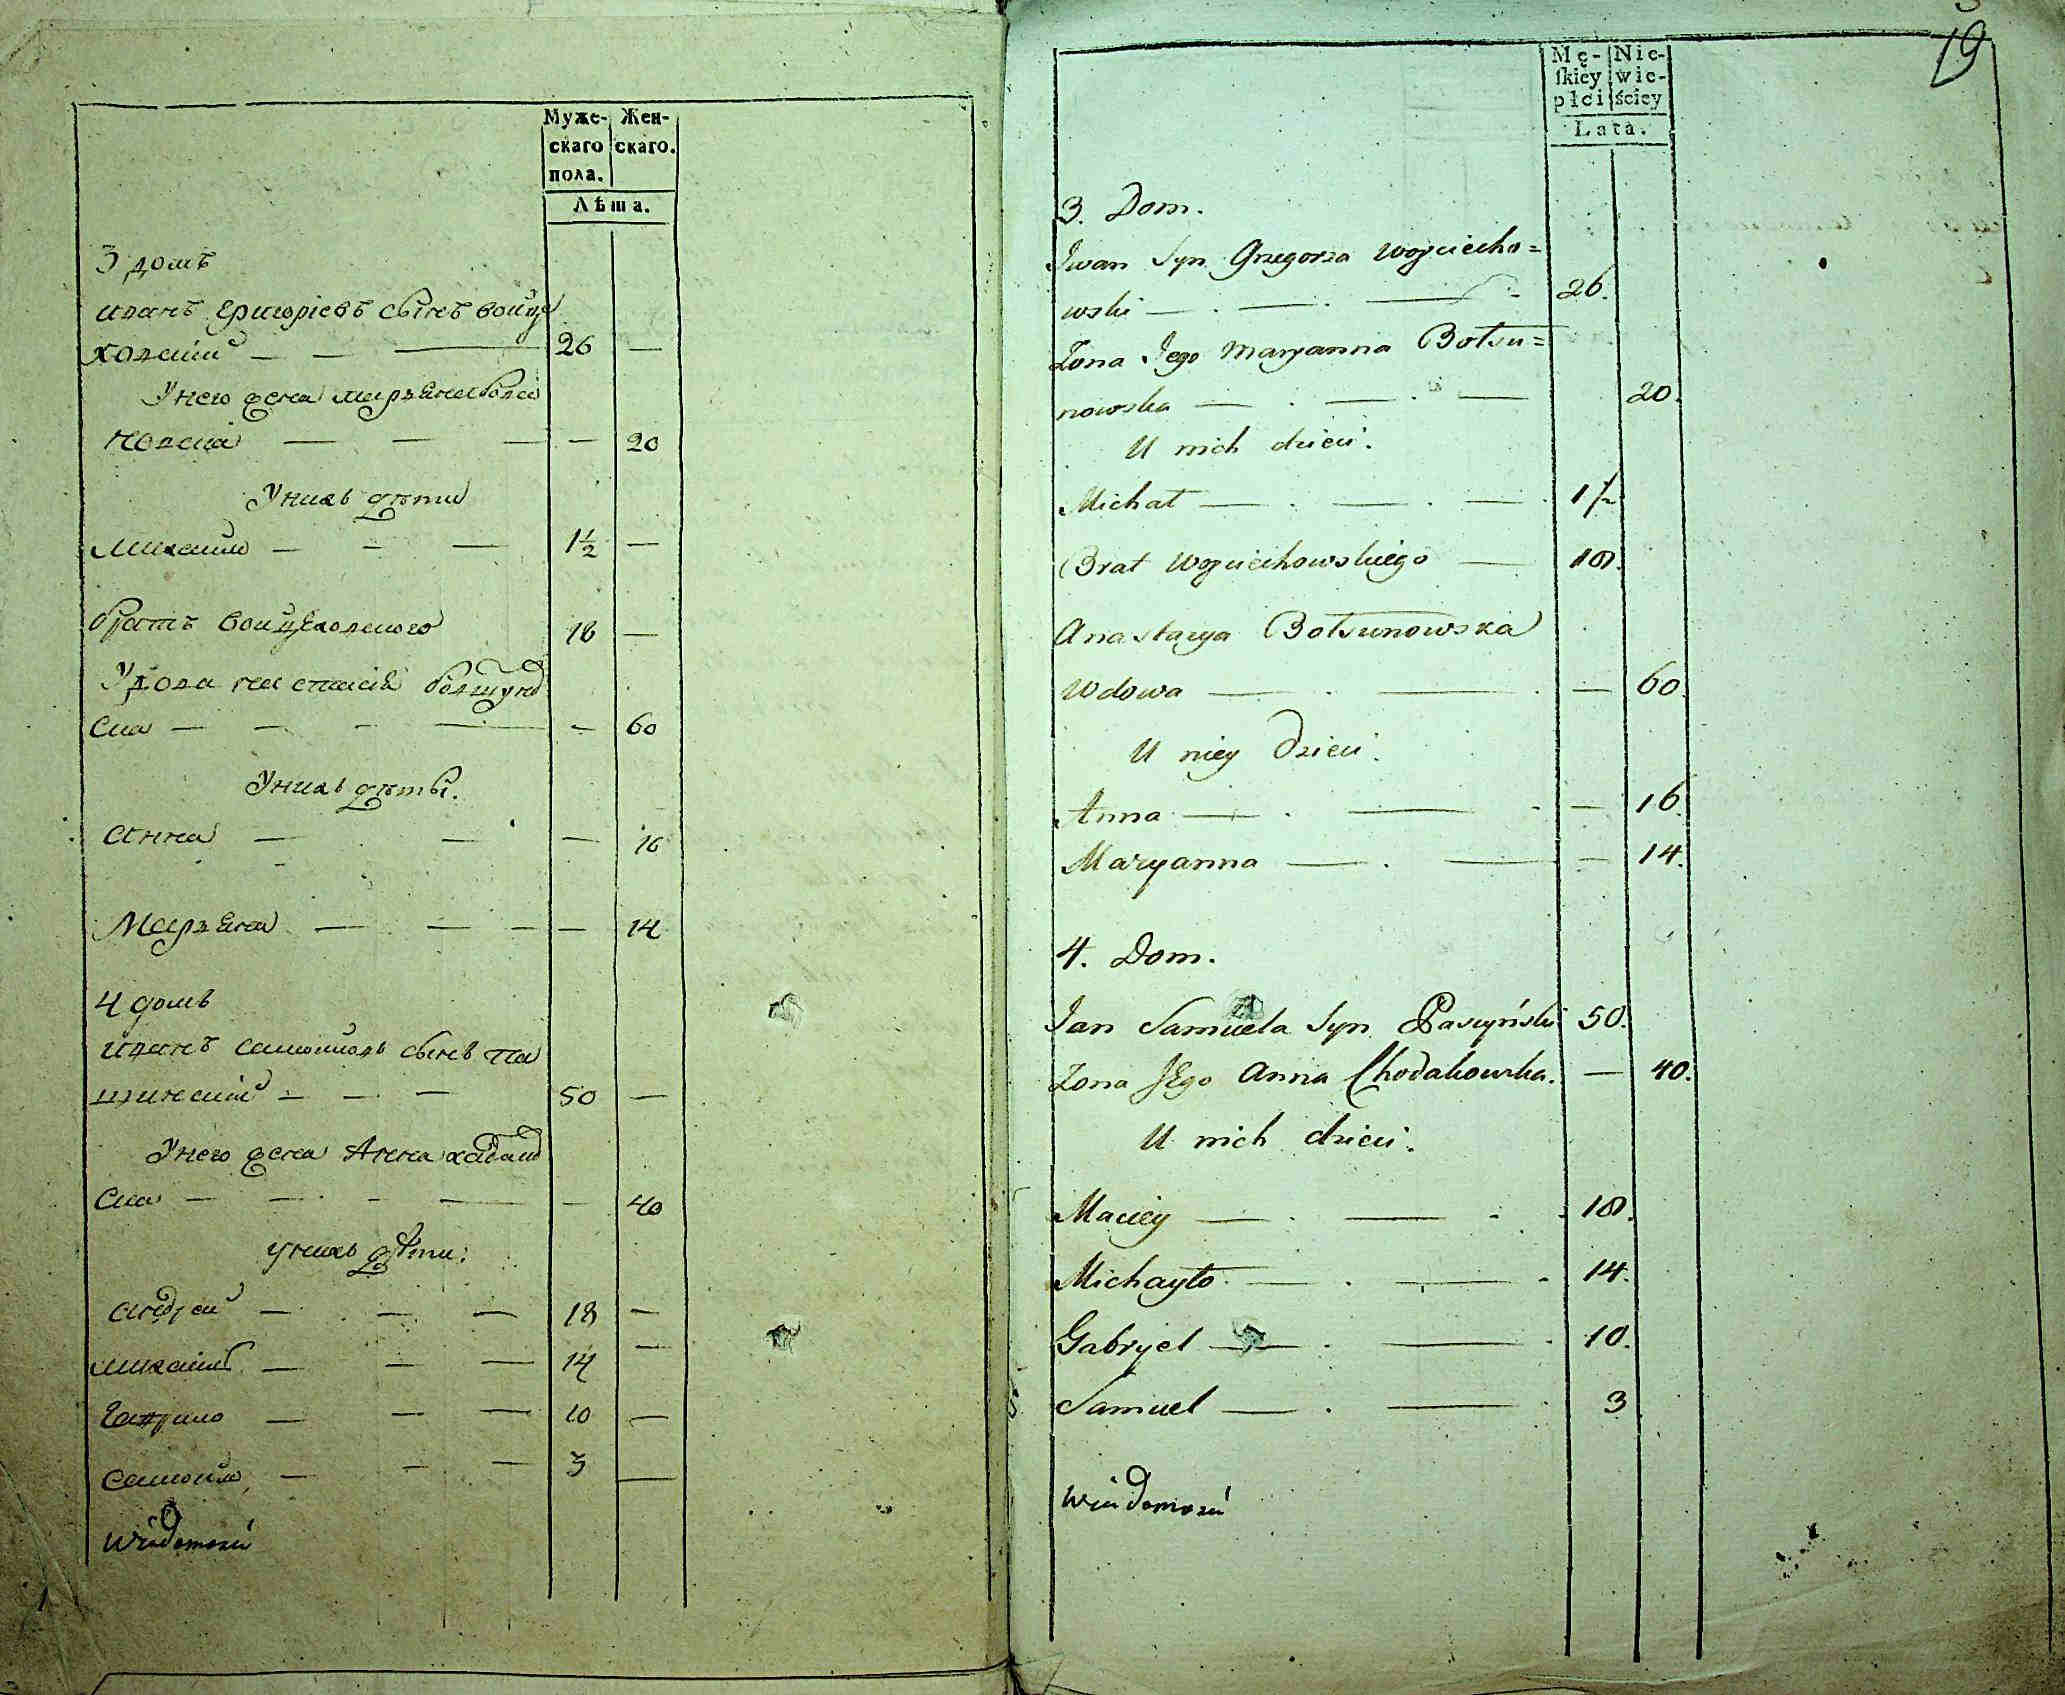 Муже-
скаго
пола.
Жен-
скаго.
Лѣта.
3 домъ
иванъ григоріевъ сынъ войце
ховскій 26
У него жена марьяна болсу
новска 20
У нихъ дѣти
михайло 1½
братъ войцеховского 18
Удова настасія
ска 60
У нихъ дѣты.
анна 16
Марьяна 14
4 домъ
иванъ самойловъ сынъ па
щинскій 50
У него жена Анна ходаков
ска 40
у нихъ дѣти:
андрей 18
михайло 14
гаврило 10
самойло 3
Wiadomość
19
Mę-
skiey
płci
Nie-
wie-
ściey
Lata.
3. Dom.
Iwan Syn Grzegorza Woyciecho=
wski 26.
Zona Jego Maryanna Bołsu=
nowska 20.
U nich dzieci.
Michał 1½
Brat Woyciechowskiego 18.
Anastazya Bołsunowska
Wdowa 60.
U niey Dzieci.
Anna 16.
Maryanna 14.
4. Dom.
Jan Samuela Syn Paszyński 50.
Zona JEgo Anna Chodakowska. 40.
U nich dzieci.
Maciey 18.
Michayło 14.
Gabryel 10.
Samuel 3
Wiadomość